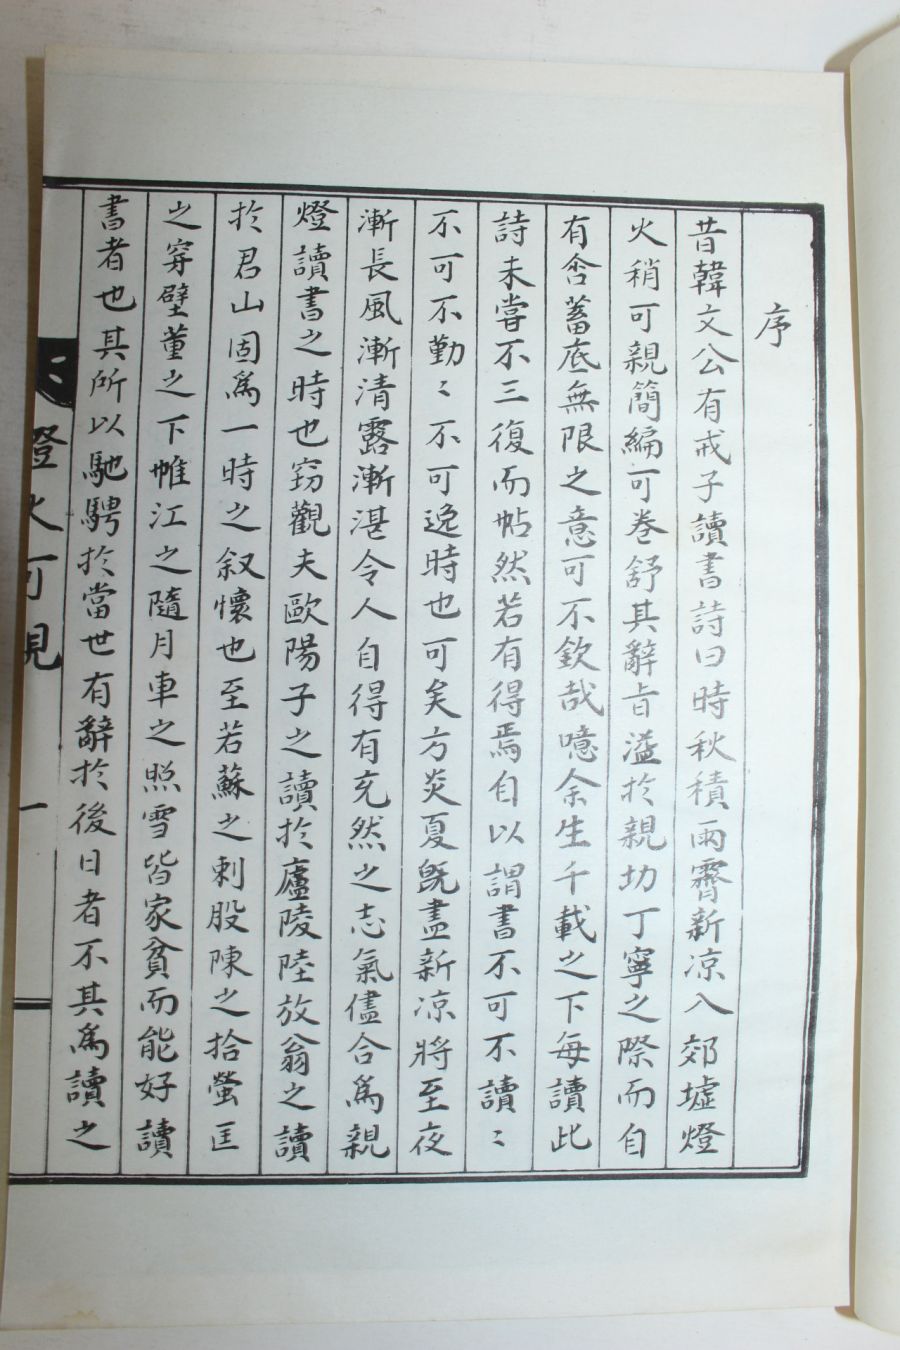 序
昔韓文公有戒子讀書詩曰時秋積雨霽新凉入郊墟燈
火稍可親簡編可卷舒其辭旨溢於親切丁寧之際而自
有含蓄底無限之意可不欽哉噫余生千載之下每讀此
詩未嘗不三復而帖然若有得焉自以謂書不可不讀〻
不可不勤〻不可逸時也可矣方炎夏旣盡新凉將至夜
漸長風漸清露漸湛令人自得有充然之志氣儘合爲親
燈讀書之時也窃觀夫歐陽子之讀於廬陵陸放翁之讀
於君山固爲一時之叙懷也至若蘇之刺股陳之拾螢匡
之穿壁董之下帷江之隨月車之照雪皆家貧而能好讀
書者也其所以馳騁於當世有辭於後日者不其爲讀之
燈火可親
一